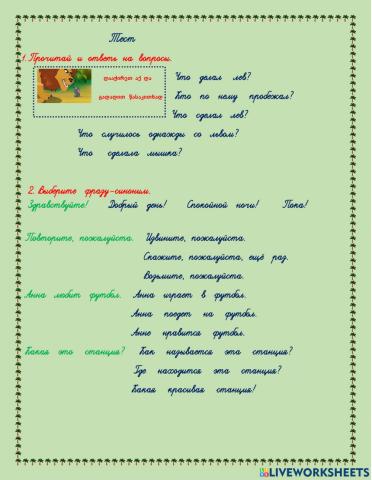 Тест
1. Прочитай и ответь на вопросы.
დააჭირეთ აქ და
გადადით წასაკითხად
Что делал лев?
Кто по нему пробежал?
Что сделал лев?
Что случилось однажды со львом?
Что сделала мышка?
2. Выберите фразу-синоним.
Здравствуйте! Добрый день! Спокойной ночи! Пока!
Повторите, пожалуйста. Извините, пожалуйста.
Скажите, пожалуйста, ещё раз.
Возьмите, пожалуйста.
Анна любит футбол. Анна играет в футбол.
Анна поедет на футбол.
Анне нравится футбол.
Какая это станция? Как называется эта станция?
Где находится эта станция?
Какая красивая станция!
LIVEWORKSHEETS